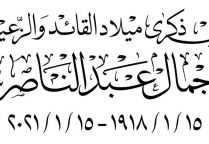 ذكرى ميلاد القائد والزعيم
جمال عبد الناصر
١٥ / ١ / ١٩١٨ - ١٥ / ١ / ٢٠٢١